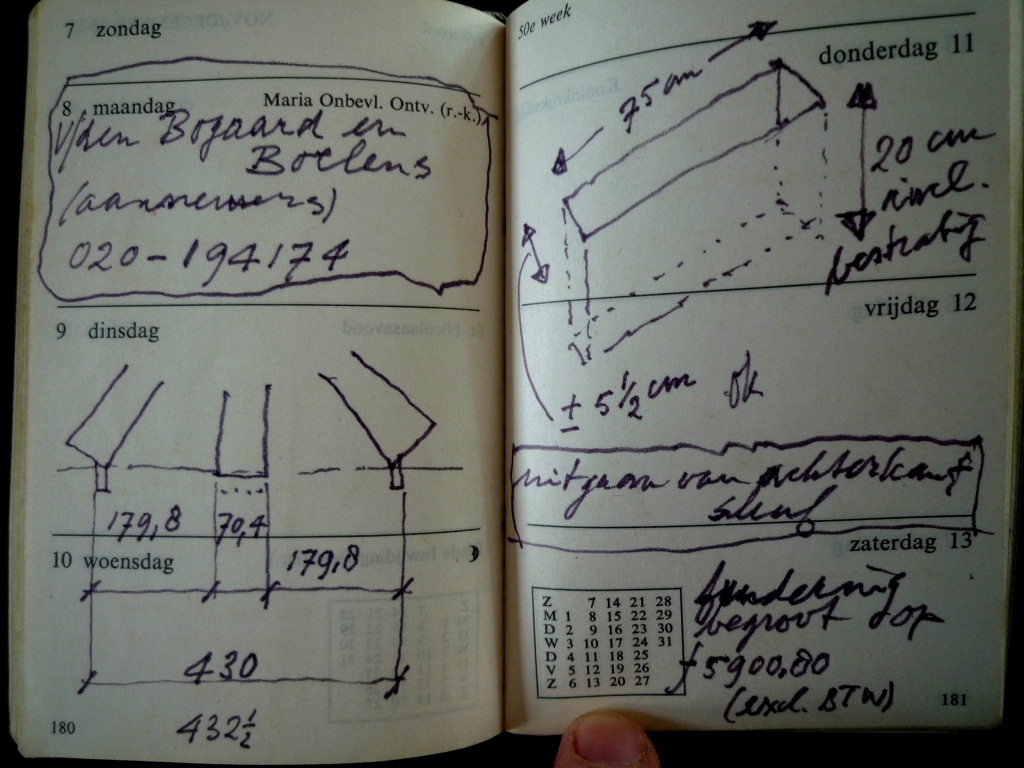 7 zondag
8 maandag Maria Onbevl. Ontv. (r.-k.)
Bogaard en
Boelens
(aannemers)
020-194174
9 dinsdag
179,8 70,4
10 woensdag
179,8
430
432½
180
50e week
donderdag 11
75 cm
20 cm
bestrating
vrijdag 12
± 5½ cm ok
uitgaan van achterkant
zaterdag 13
Z 7 14 21 28
M 1 8 15 22 29
D 2 9 16 23 30
W 3 10 17 24 31
D 4 11 18 25
V 5 12 19 26
Z 6 13 20 27
fundering
begroot op
ƒ 5900,80
(excl. BTW)
181